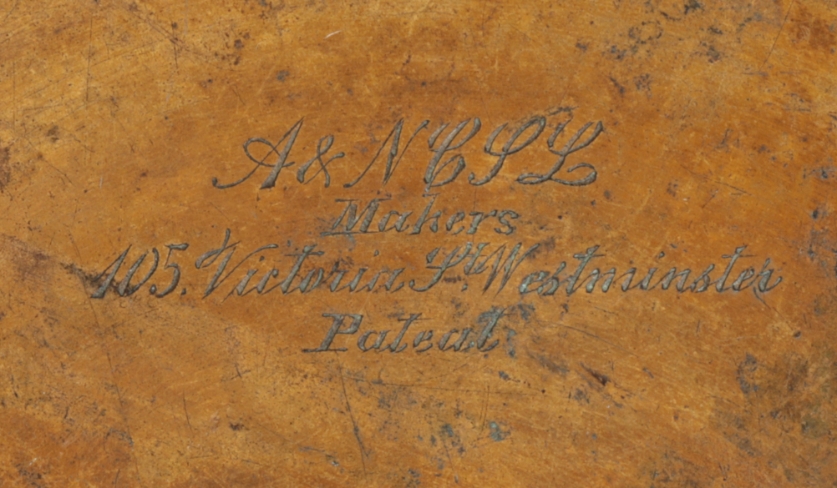 A & N C S L
Makers
105. Victoria St. Westminster
Patent